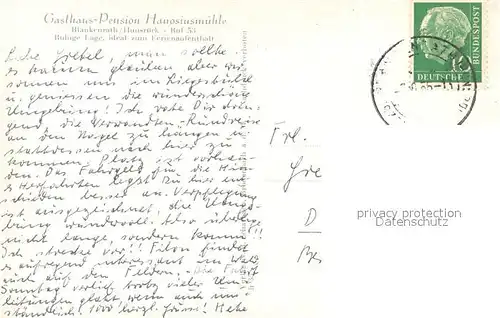 Gasthaus-Pension Hanosiusmühle
Blankenrath/Hunsrück - Ruf 53
Ruhige Lage, ideal zum Ferienaufenthalt
Liebe Gretel, man sollte
es kaum glauben aber wir
sonnen uns im Liegestuhl
u. genießen die wunderschöne
Umgebung! Ich rate Dir drin-
gend, die Verwandten-Rundreise
an den Nagel zu hängen u.
stattdessen nach hier zu
kommen. Platz ist vorhan-
den. Das Fahrgeld für die Hin-
u. Herfahrten legst Du hier ent-
schieden besser an. Verpflegung
ist ausgezeichnet, die Umge-
bung wundervoll. Also überlege
nicht lange, sondern komm!!!
Ich strecke vor!! Filou findet
es aufregend interessant im Wald
und auf den Feldern. Die Fahrt
Sonntag verlief trotz vieler Um-
leitungen glatt, wenn auch um-
ständlich. 1000 herzl. Grüsse!
DEUTSCHE
BUNDESPOST
10
Frl.
Gre
D
privacy protection
Datenschutz